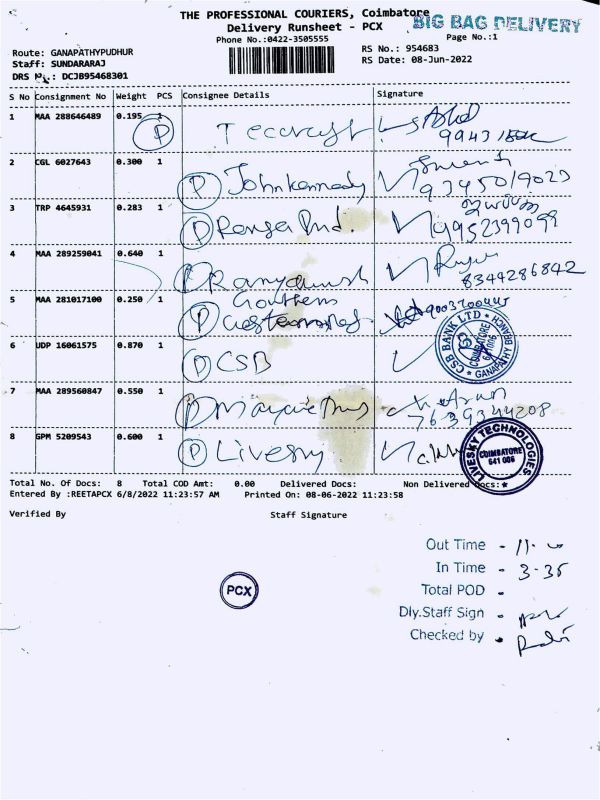 THE PROFESSIONAL COURIERS, Coimbatore
BIG BAG DELIVERY
Delivery Runsheet - PCX
Phone No.:0422-3505555
Page No.:1
Route: GANAPATHYPUDHUR
RS No.: 954683
Staff: SUNDARARAJ
RS Date: 08-Jun-2022
DRS No.: DCJB95468301
S No Consignment No Weight PCS Consignee Details Signature
1 MAA 288646489 0.195 1
P 9943
2 CGL 6027643 0.300 1
P John kennedy 9345019023
3 TRP 4645931 0.283 1
P 9952399099
4 MAA 289259041 0.640 1
P 8344286842
5 MAA 281017100 0.250 1 Gouthem
P
6 UDP 16061575 0.870 1
P CSB
CSB BANK LTD * GANAPATHY BRANCH *
COIMBATORE
641 006
7 MAA 289560847 0.550 1
P Arun
7639344208
8 GPM 5209543 0.600 1
P Livesky
LIVESKY TECHNOLOGIES
COIMBATORE
641 006
Total No. Of Docs: 8 Total COD Amt: 0.00 Delivered Docs: Non Delivered Docs:
Entered By :REETAPCX 6/8/2022 11:23:57 AM Printed On: 08-06-2022 11:23:58
Verified By Staff Signature
Out Time -
In Time - 3-35
Total POD -
Dly.Staff Sign -
Checked by -
PCX